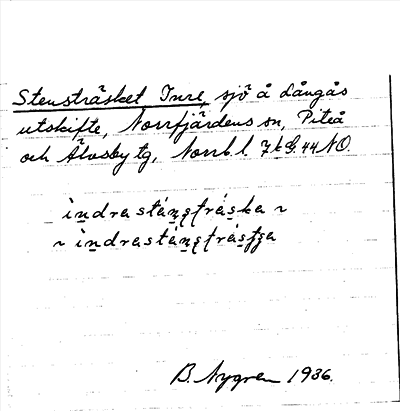 Stensträsket Inre, sjö å Långås
utskifte, Norrfjärdens sn, Piteå
och Älvsby tg, Norrb. l. 7kG.44NO.
ìndrastánstráska ~
~ ìndrastánstrástja
B. Nygren 1936.